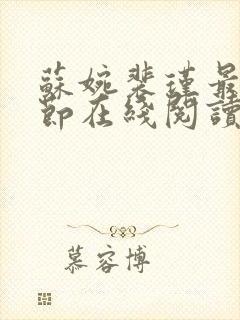 蘇婉裴瑾最
節在綫閱讀
慕容博